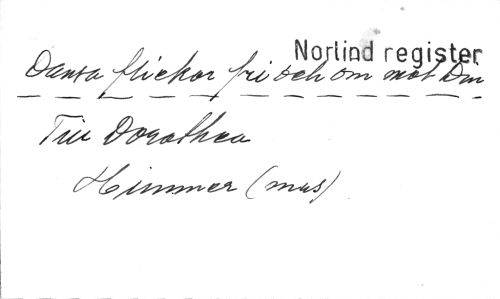 Norlind register
Dansa flickor frisch om mot
Till Dorothea
Himmer (mus)